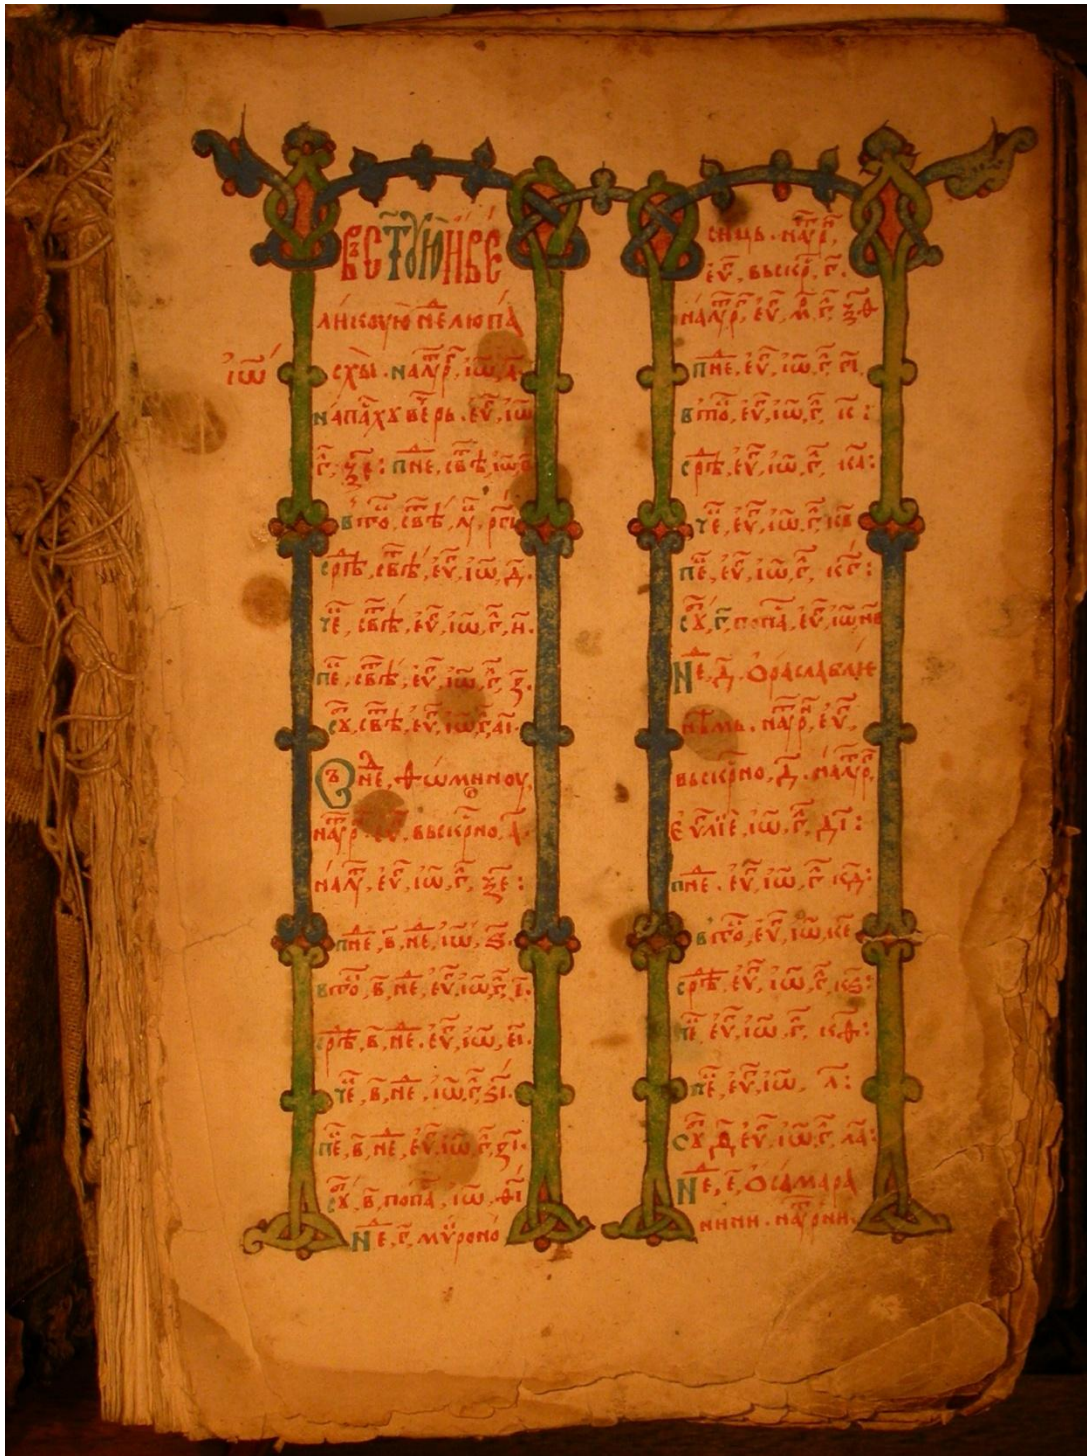 Въ ст҃ꙋю нⷣе
ликꙋю нⷣелю па
і҆ѡ҃
схы · наⷧ҇ꙋрⷢ҇, і҆ѡ҃, а҃ ·
напасхꙋ веⷱ҇ръ · еѵⷢ҇, і҆ѡ҃
пⷩ҇е, свⷮ҇ѣ, і҆ѡ҃
втⷪ҇о, свⷮ҇ѣ, лⷹ҇,
срⷣѣ, свⷮ҇ѣ, еѵⷢ҇, і҆ѡ҃, д҃ ·
чⷮ҇е, свⷮ҇ѣ, еѵⷢ҇, і҆ѡ҃, гⷧ҇, и҃ ·
пⷮ҇е, свⷮ҇ѣ, еѵⷢ҇, і҆ѡ҃, гⷧ҇, з҃ ·
сꙋⷠ҇, свⷮ҇ѣ, еѵⷢ҇, і҆ѡ҃, гⷧ҇, аі҃ ·
Въ нⷣе, ѳѡминоу,
наꙋⷮ҇р · еѵⷢ҇ · въскрⷭ҇но, а҃ ·
налⷮ҇ꙋ, еѵⷢ҇, і҆ѡ҃, гⷧ҇, ѯ҃е :
пⷩ҇е, в҃, нⷣе, і҆ѡ҃, ѕ҃ ·
втⷪ҇о, в҃, нⷣе, еѵⷢ҇, і҆ѡ҃, гⷧ҇, і҃ ·
срⷣѣ, в҃, нⷣе · еѵⷢ҇, і҆ѡ҃, еі҃ ·
чⷮ҇е, в҃, нⷣе, і҆ѡ҃, гⷧ҇, ѕі҃ ·
пⷮ҇е, в҃, нⷣе, еѵⷢ҇, і҆ѡ҃, гⷧ҇, зі҃ ·
сꙋⷠ҇, в҃, попаⷭ҇, і҆ѡ҃, ѳі҃
Нⷣе, г҃, мѵроно
сиць · наꙋⷮ҇р,
еѵⷢ҇, въскрⷭ҇, г҃ ·
налⷮ҇ꙋрⷢ҇, еѵⷢ҇, м҃, гⷧ҇, ѯ҃ѳ
пⷩ҇е, еѵⷢ҇, і҆ѡ҃, гⷧ҇, гі҃,
втⷪ҇о, еѵⷢ҇, і҆ѡ҃, гⷧ҇, к҃ :
срⷣѣ, еѵⷢ҇, і҆ѡ҃, гⷧ҇, ка҃ :
чⷮ҇е, еѵⷢ҇, і҆ѡ҃, гⷧ҇, кв҃
пⷮ҇е, еѵⷢ҇, і҆ѡ҃, гⷧ҇, кг҃ :
сꙋⷠ҇, г҃, попаⷭ҇, еѵⷢ҇, і҆ѡ҃, не҃
Нⷣе, д҃ · Ѻраславлѥ
нѣмь · наꙋⷮ҇р, еѵⷢ҇,
въскрⷭ҇но, д҃ · налⷮ҇ꙋр,
Еѵⷢ҇лїе, і҆ѡ҃, гⷧ҇, ді҃ :
пⷩ҇е · еѵⷢ҇, і҆ѡ҃, гⷧ҇, кд҃ :
втⷪ҇о, еѵⷢ҇, і҆ѡ҃, ке҃
срⷣѣ, еѵⷢ҇, і҆ѡ҃, гⷧ҇, кѕ҃ :
чⷮ҇е, еѵⷢ҇, і҆ѡ҃, гⷧ҇, кѳ҃ :
пⷮ҇е, еѵⷢ҇, і҆ѡ҃, л҃ :
сꙋⷠ҇, д҃, еѵⷢ҇, і҆ѡ҃, гⷧ҇, ла҃ :
Нⷣе, е҃, Ѻ самара
нини · наꙋⷮ҇рни ·